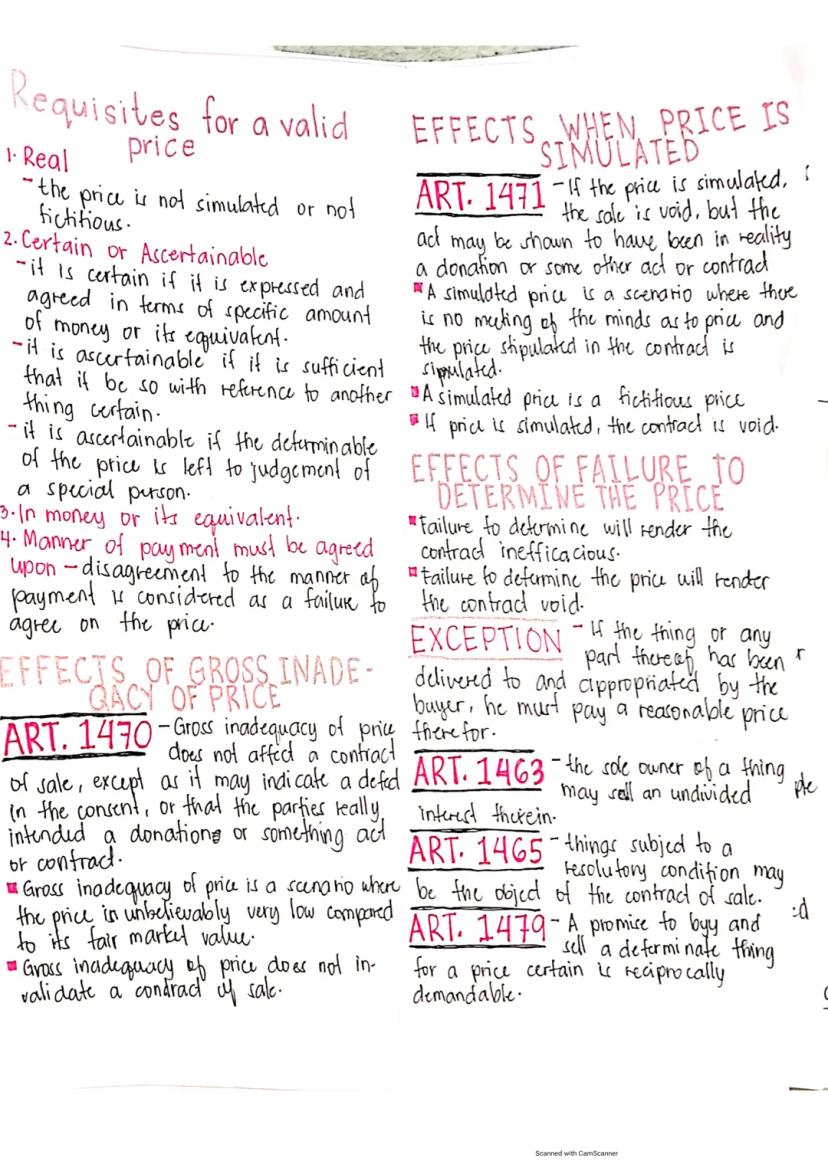 Requisites for a valid
price
1. Real
- the price is not simulated or not
fictitious.
2. Certain or Ascertainable
- it is certain if it is expressed and
agreed in terms of specific amount
of money or its equivalent.
- it is ascertainable if it is sufficient
that it be so with reference to another
thing certain.
- it is ascertainable if the determinable
of the price is left to judgement of
a special person.
3. In money or its equivalent.
4. Manner of payment must be agreed
upon - disagreement to the manner of
payment is considered as a failure to
agree on the price.
EFFECTS OF GROSS INADE-
QACY OF PRICE
ART. 1470 - Gross inadequacy of price
does not affect a contract
of sale, except as it may indicate a defect
in the consent, or that the parties really
intended a donations or something act
or contract.
Gross inadequacy of price is a scenario where
the price in unbelievably very low compared
to its fair market value.
Gross inadequacy of price does not in-
validate a contract of sale.
EFFECTS WHEN PRICE IS
SIMULATED
ART. 1471 - If the price is simulated,
the sale is void, but the
act may be shown to have been in reality
a donation or some other act or contract
A simulated price is a scenario where there
is no meeting of the minds as to price and
the price stipulated in the contract is
simulated.
A simulated price is a fictitious price
If price is simulated, the contract is void.
EFFECTS OF FAILURE TO
DETERMINE THE PRICE
Failure to determine will render the
contract inefficacious.
Failure to determine the price will render
the contract void.
EXCEPTION - If the thing or any
part thereof has been
delivered to and appropriated by the
buyer, he must pay a reasonable price
therefor.
ART. 1463 - the sole owner of a thing
may sell an undivided
interest therein.
ART. 1465 - things subject to a
resolutory condition may
be the object of the contract of sale.
ART. 1479 - A promise to buy and
sell a determinate thing
for a price certain is reciprocally
demandable.
Scanned with CamScanner